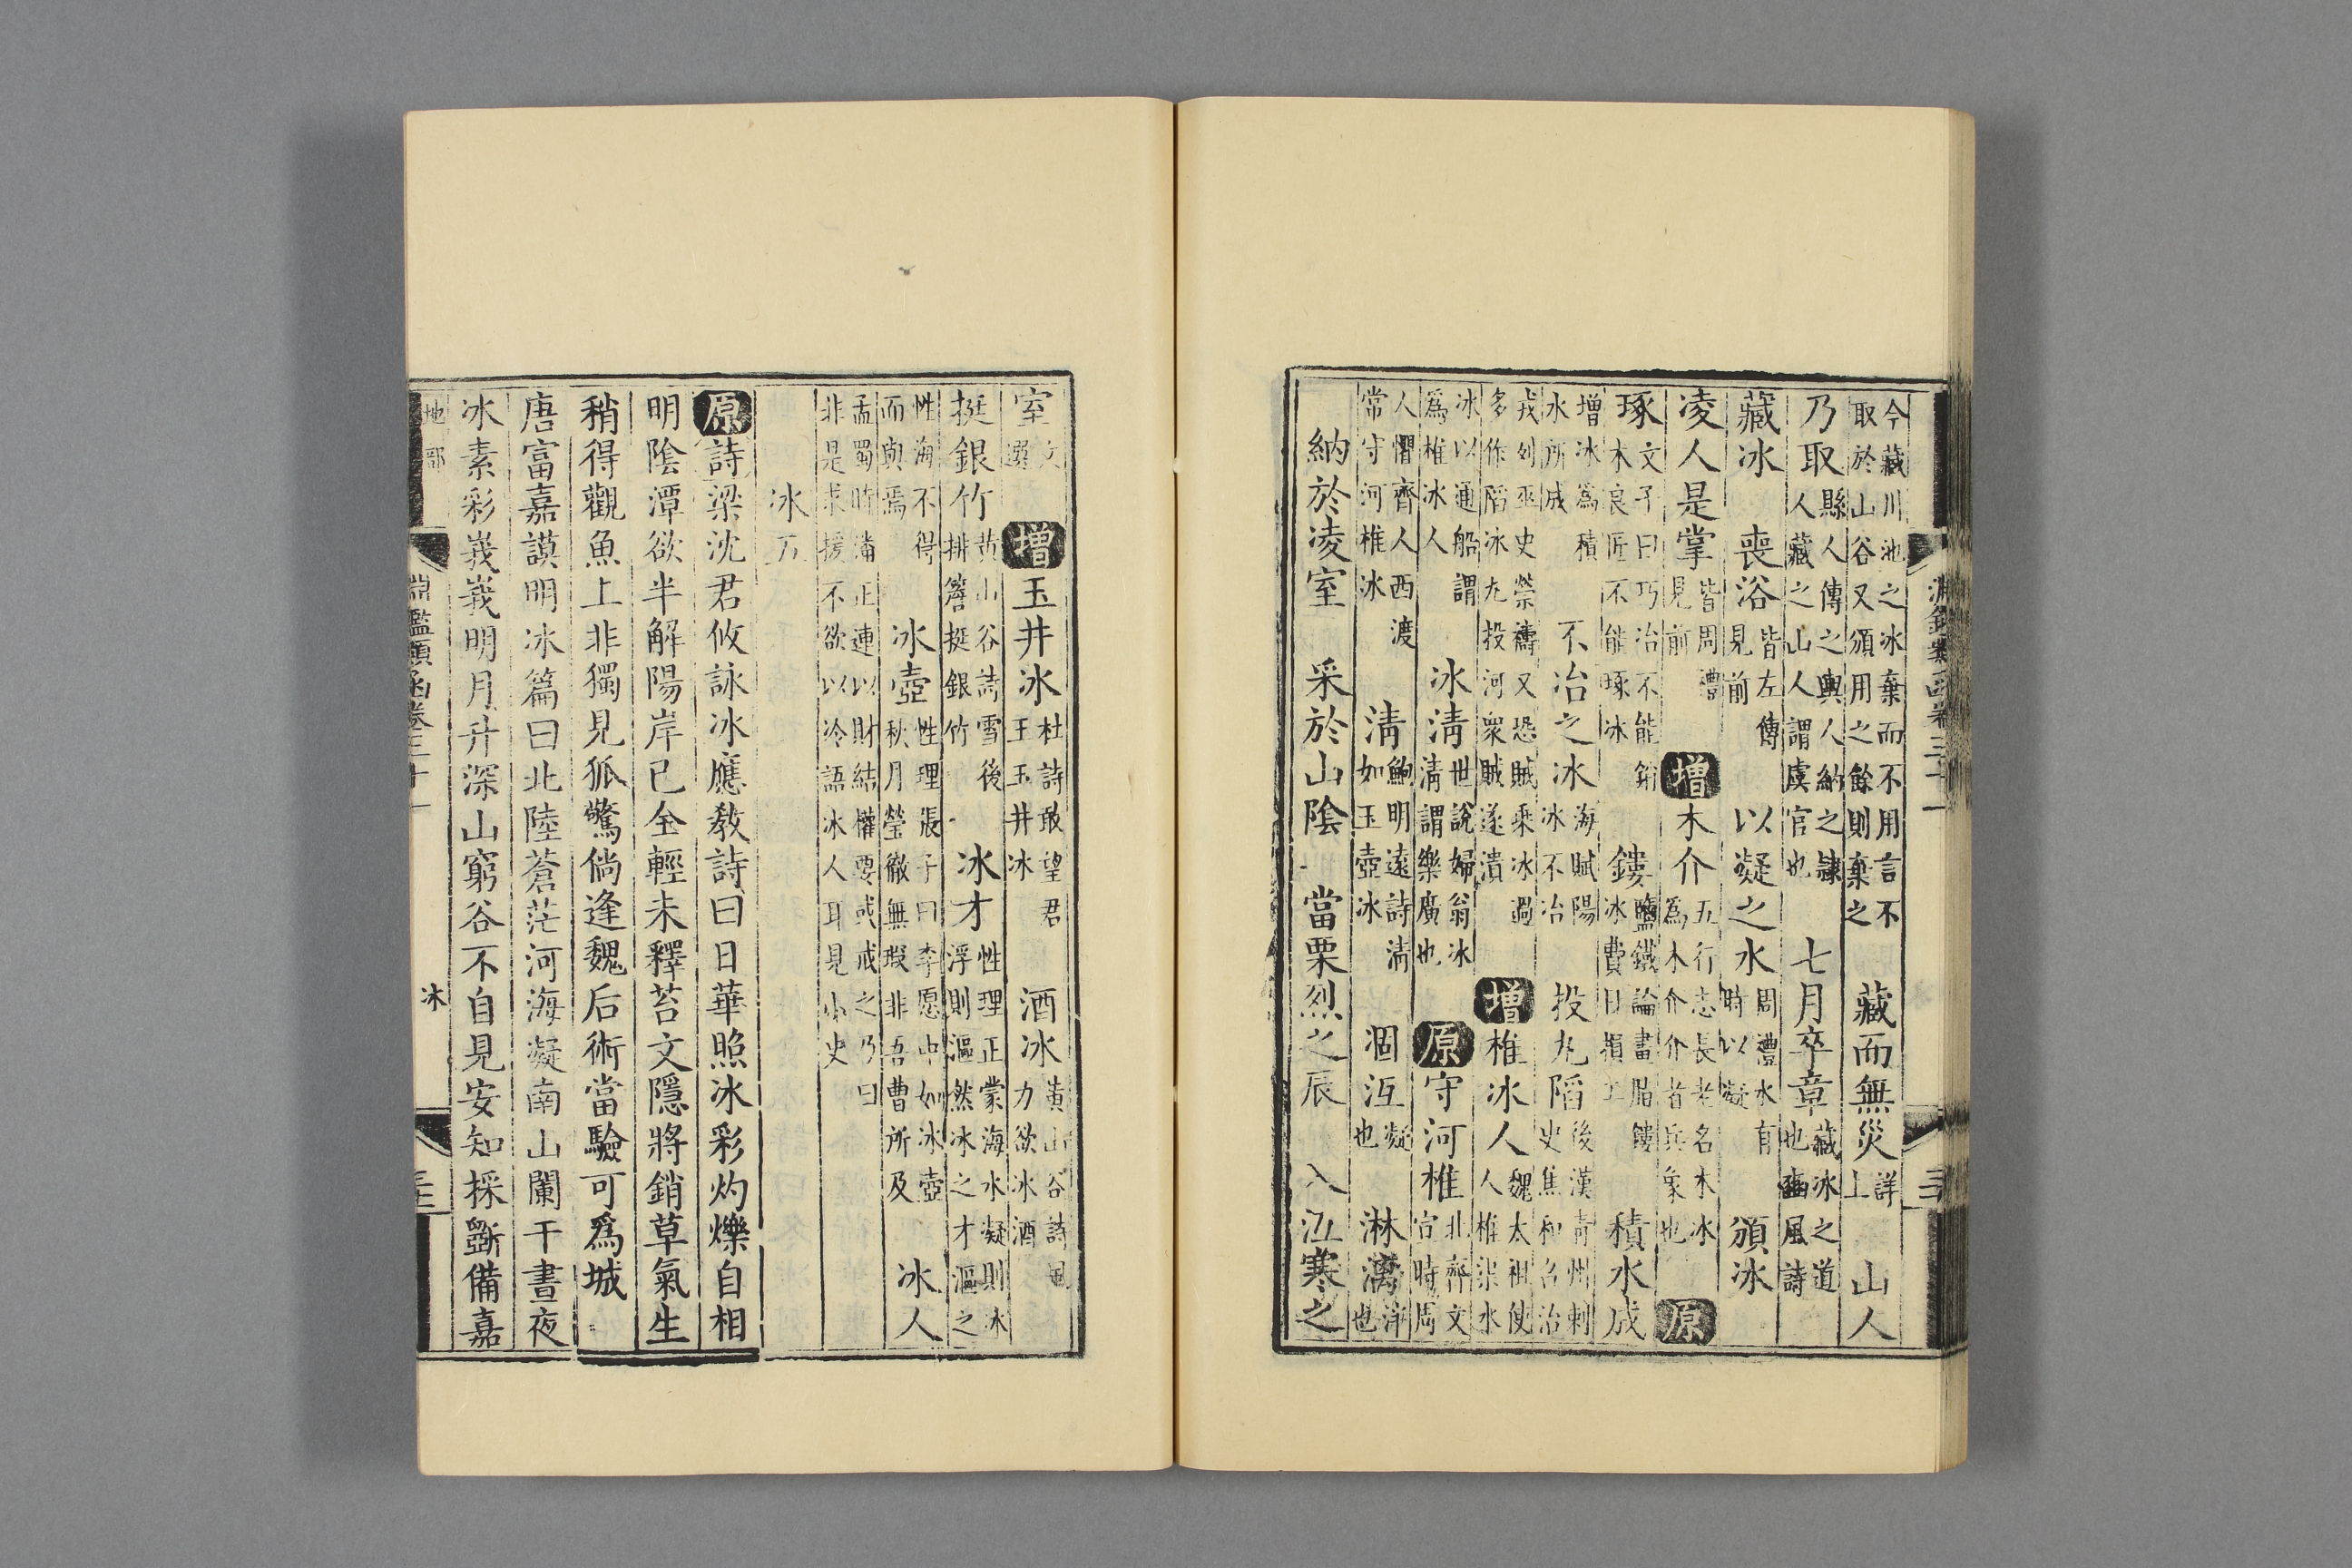 今藏川池之冰棄而不用言不
取於山谷又頒用之餘則棄之 藏而無災 詳上 山人
乃取 縣人傳之輿人納之隸
人藏之山人謂虞官也 七月卒章 藏冰之道
也豳風詩
藏冰 喪浴 皆左傳
見前 以凝之水 周禮水有
時以凝 頒冰
凌人是掌 皆周禮
見前 增 木介 五行志長老名木冰
為木介介者兵象也 原
琢 文子曰巧冶不能銷
木良匠不能琢冰 鏤 鹽鐵論畫脂鏤
冰費日損工 積水成
增冰為積
水所成 不冶之冰 海賦陽
冰不冶 投丸陷 後漢青州刺
史焦和召治
戎列巫史禜禱又恐賊乘冰過
多作陷冰丸投河衆賊遂潰 增 椎冰人 魏太祖使
人椎渠水
冰以通船謂
為椎冰人 冰清 世說婦翁冰
清謂樂廣也 原 守河椎 北齊文
宣時周
人懼齊人西渡
常守河椎冰 清 鮑明遠詩清
如玉壺冰 涸沍 凝
也 淋漓 浄
也
納於凌室 采於山陰 當栗烈之辰 入沍寒之
淵鑑類函卷三十一
室 文
選 增 玉井冰 杜詩敢望君
王玉井冰 酒冰 黃山谷詩風
力欲冰酒
挺銀竹 黃山谷詩雪後
排簷挺銀竹 冰才 性理正蒙海水凝則冰
浮則漚然冰之才漚之
性海不得
而與焉 冰壺 性理張子曰李愿中如冰壺
秋月瑩徹無瑕非吾曹所及 冰人
孟蜀時潘正連以財結權要或戒之乃曰
非是求援不欲以冷語冰人耳見小史
冰五
原 詩梁沈君攸詠冰應教詩曰日華照冰彩灼爍自相
明陰潭欲半解陽岸已全輕未釋苔文隱將銷草氣生
稍得觀魚上非獨見狐驚倘逢魏后術當驗可為城
唐富嘉謨明冰篇曰北陸蒼茫河海凝南山闌干晝夜
冰素彩峩峩明月升深山窮谷不自見安知採斲備嘉
地部 淵鑑類函卷三十一 冰